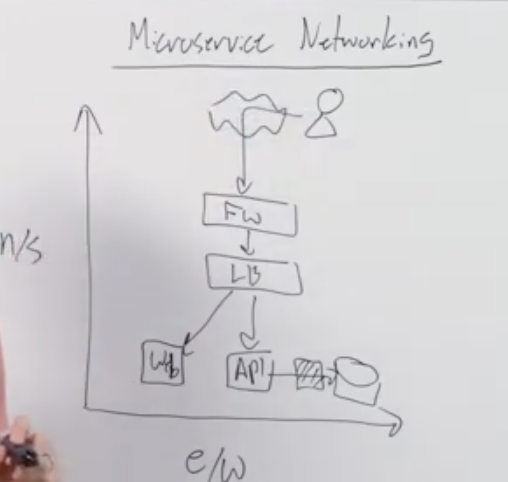 Microservice Networking
FW
n/s
LB
Web
API
e/w